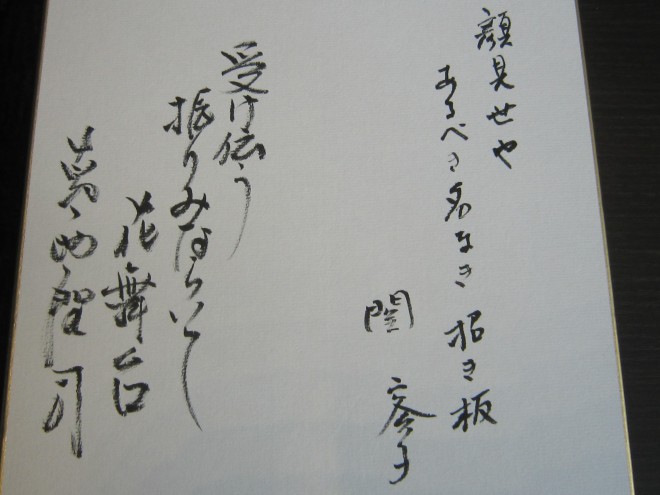 顔見世や
あるべき名なき 招き板
関 容子
受け伝う
振りみならいし
花舞台
葛西聖司